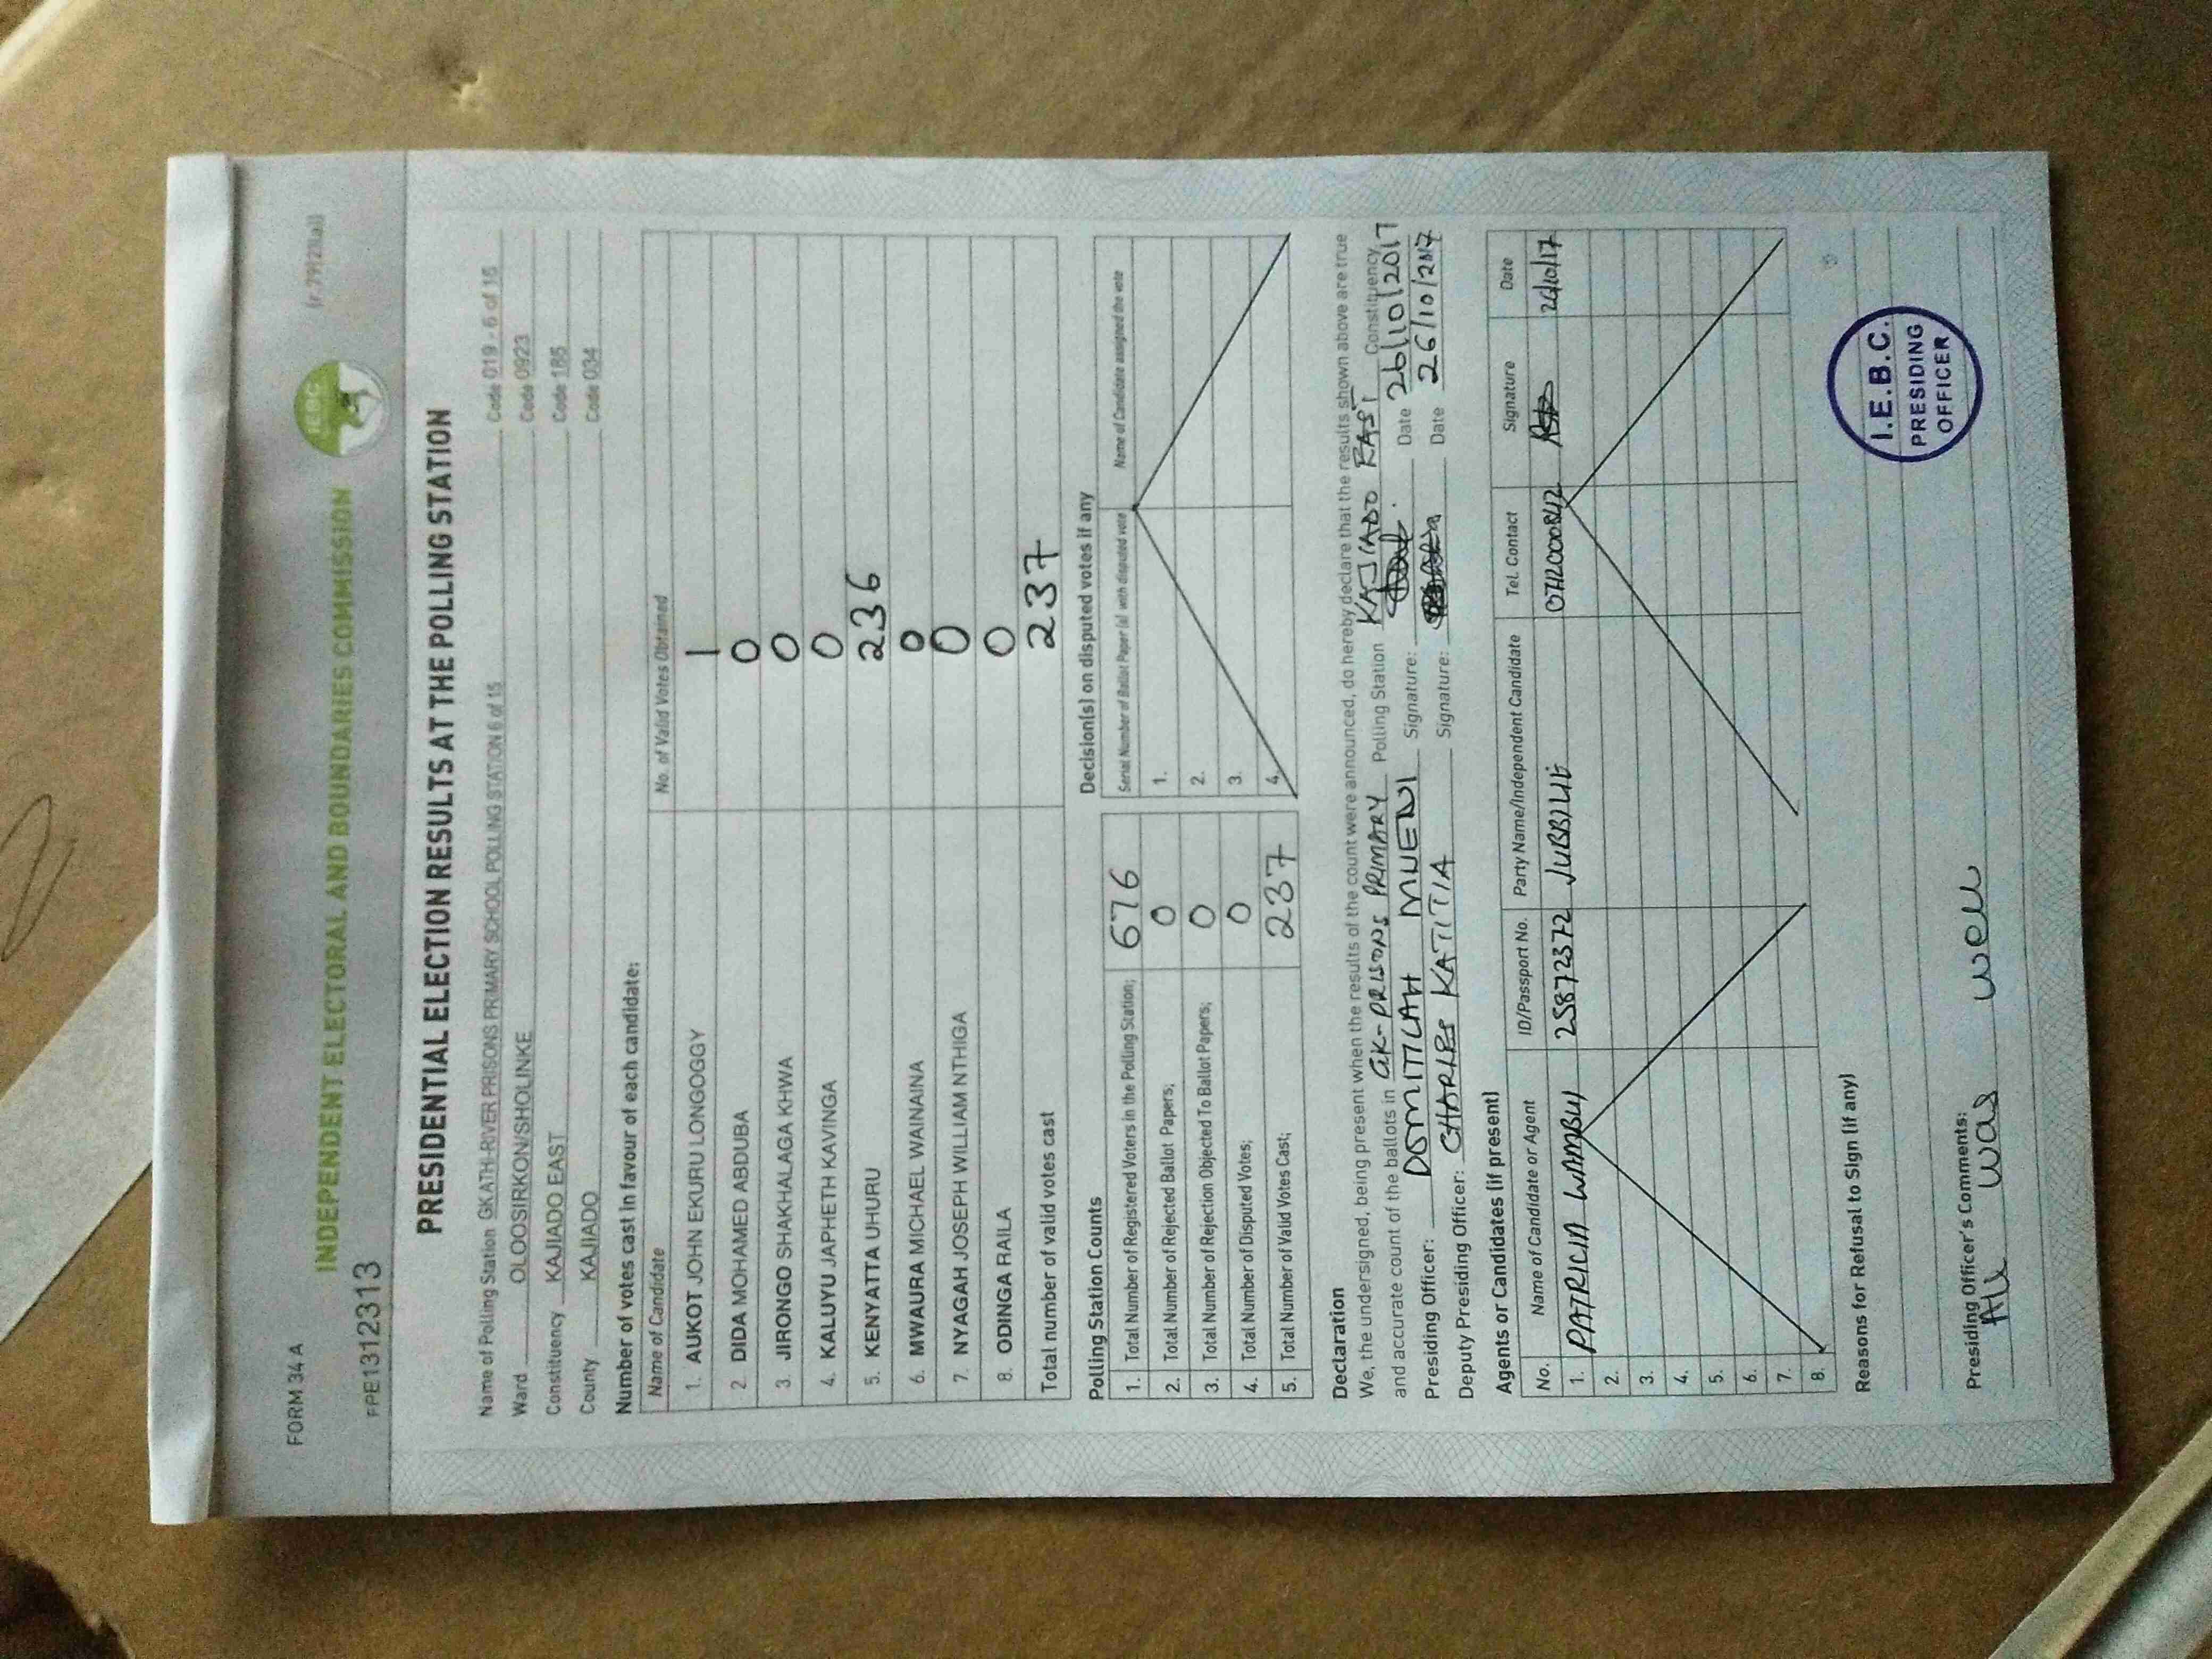 FORM 34 A
(r.79(2)(a))
INDEPENDENT ELECTORAL AND BOUNDARIES COMMISSION
IEBC
FPE1312313
PRESIDENTIAL ELECTION RESULTS AT THE POLLING STATION
Name of Polling Station GK ATHI-RIVER PRISONS PRIMARY SCHOOL POLLING STATION 6 of 15 Code 019 - 6 of 15
Ward OLOOSIRKON/SHOLINKE Code 0923
Constituency KAJIADO EAST Code 185
County KAJIADO Code 034
Number of votes cast in favour of each candidate:
Name of Candidate No. of Valid Votes Obtained
1. AUKOT JOHN EKURU LONGOGGY 1
2. DIDA MOHAMED ABDUBA 0
3. JIRONGO SHAKHALAGA KHWA 0
4. KALUYU JAPHETH KAVINGA 0
5. KENYATTA UHURU 236
6. MWAURA MICHAEL WAINAINA 0
7. NYAGAH JOSEPH WILLIAM NTHIGA 0
8. ODINGA RAILA 0
Total number of valid votes cast 237
Polling Station Counts
1. Total Number of Registered Voters in the Polling Station; 676
2. Total Number of Rejected Ballot Papers; 0
3. Total Number of Rejection Objected To Ballot Papers; 0
4. Total Number of Disputed Votes; 0
5. Total Number of Valid Votes Cast; 237
Decision(s) on disputed votes if any
Serial Number of Ballot Paper (s) with disputed vote Name of Candidate assigned the vote
1.
2.
3.
4.
Declaration
We, the undersigned, being present when the results of the count were announced, do hereby declare that the results shown above are true
and accurate count of the ballots in GK-PRISONS PRIMARY Polling Station KAJIADO EAST Constituency
Presiding Officer: DOMITILAH MUENI Signature: Date 26/10/2017
Deputy Presiding Officer: CHARLES KATITIA Signature: Date 26/10/2017
Agents or Candidates (if present)
No. Name of Candidate or Agent ID/Passport No. Party Name/Independent Candidate Tel. Contact Signature Date
1. PATRICIA WAMBUI 25872372 JUBILLE 26/10/17
2.
3.
4.
5.
6.
7.
8.
Reasons for Refusal to Sign (if any)
I.E.B.C.
PRESIDING
OFFICER
Presiding Officer's Comments:
All was well